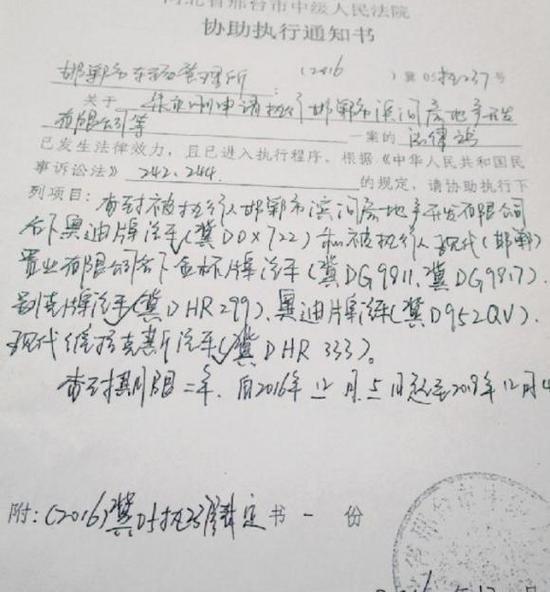 河北省邢台市中级人民法院
协助执行通知书
邯郸市车辆管理所:(2016)冀05执237号
关于 申请执行邯郸市滨河房地产开发
有限公司等 一案的 法律
已发生法律效力，且已进入执行程序。根据《中华人民共和国民
事诉讼法》242、244. 的规定，请协助执行下
列项目：查封被执行人邯郸市滨河房地产开发有限公司
名下奥迪牌汽车(冀DDX722)和被执行人现代(邯郸)
置业有限公司名下金杯牌汽车(冀DG9811、冀DG9817)、
别克牌汽车(冀DHR299)、奥迪牌汽车(冀D952QV)、
现代维拉克斯汽车(冀DHR333)。
查封期限三年，自2016年12月5日起至2019年12月4
附:(2016)冀05执237裁定书一份